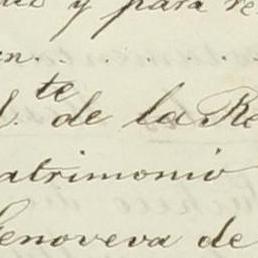 y para re
n. . . . .
l.te de la Re
atrimonio
enoveva de